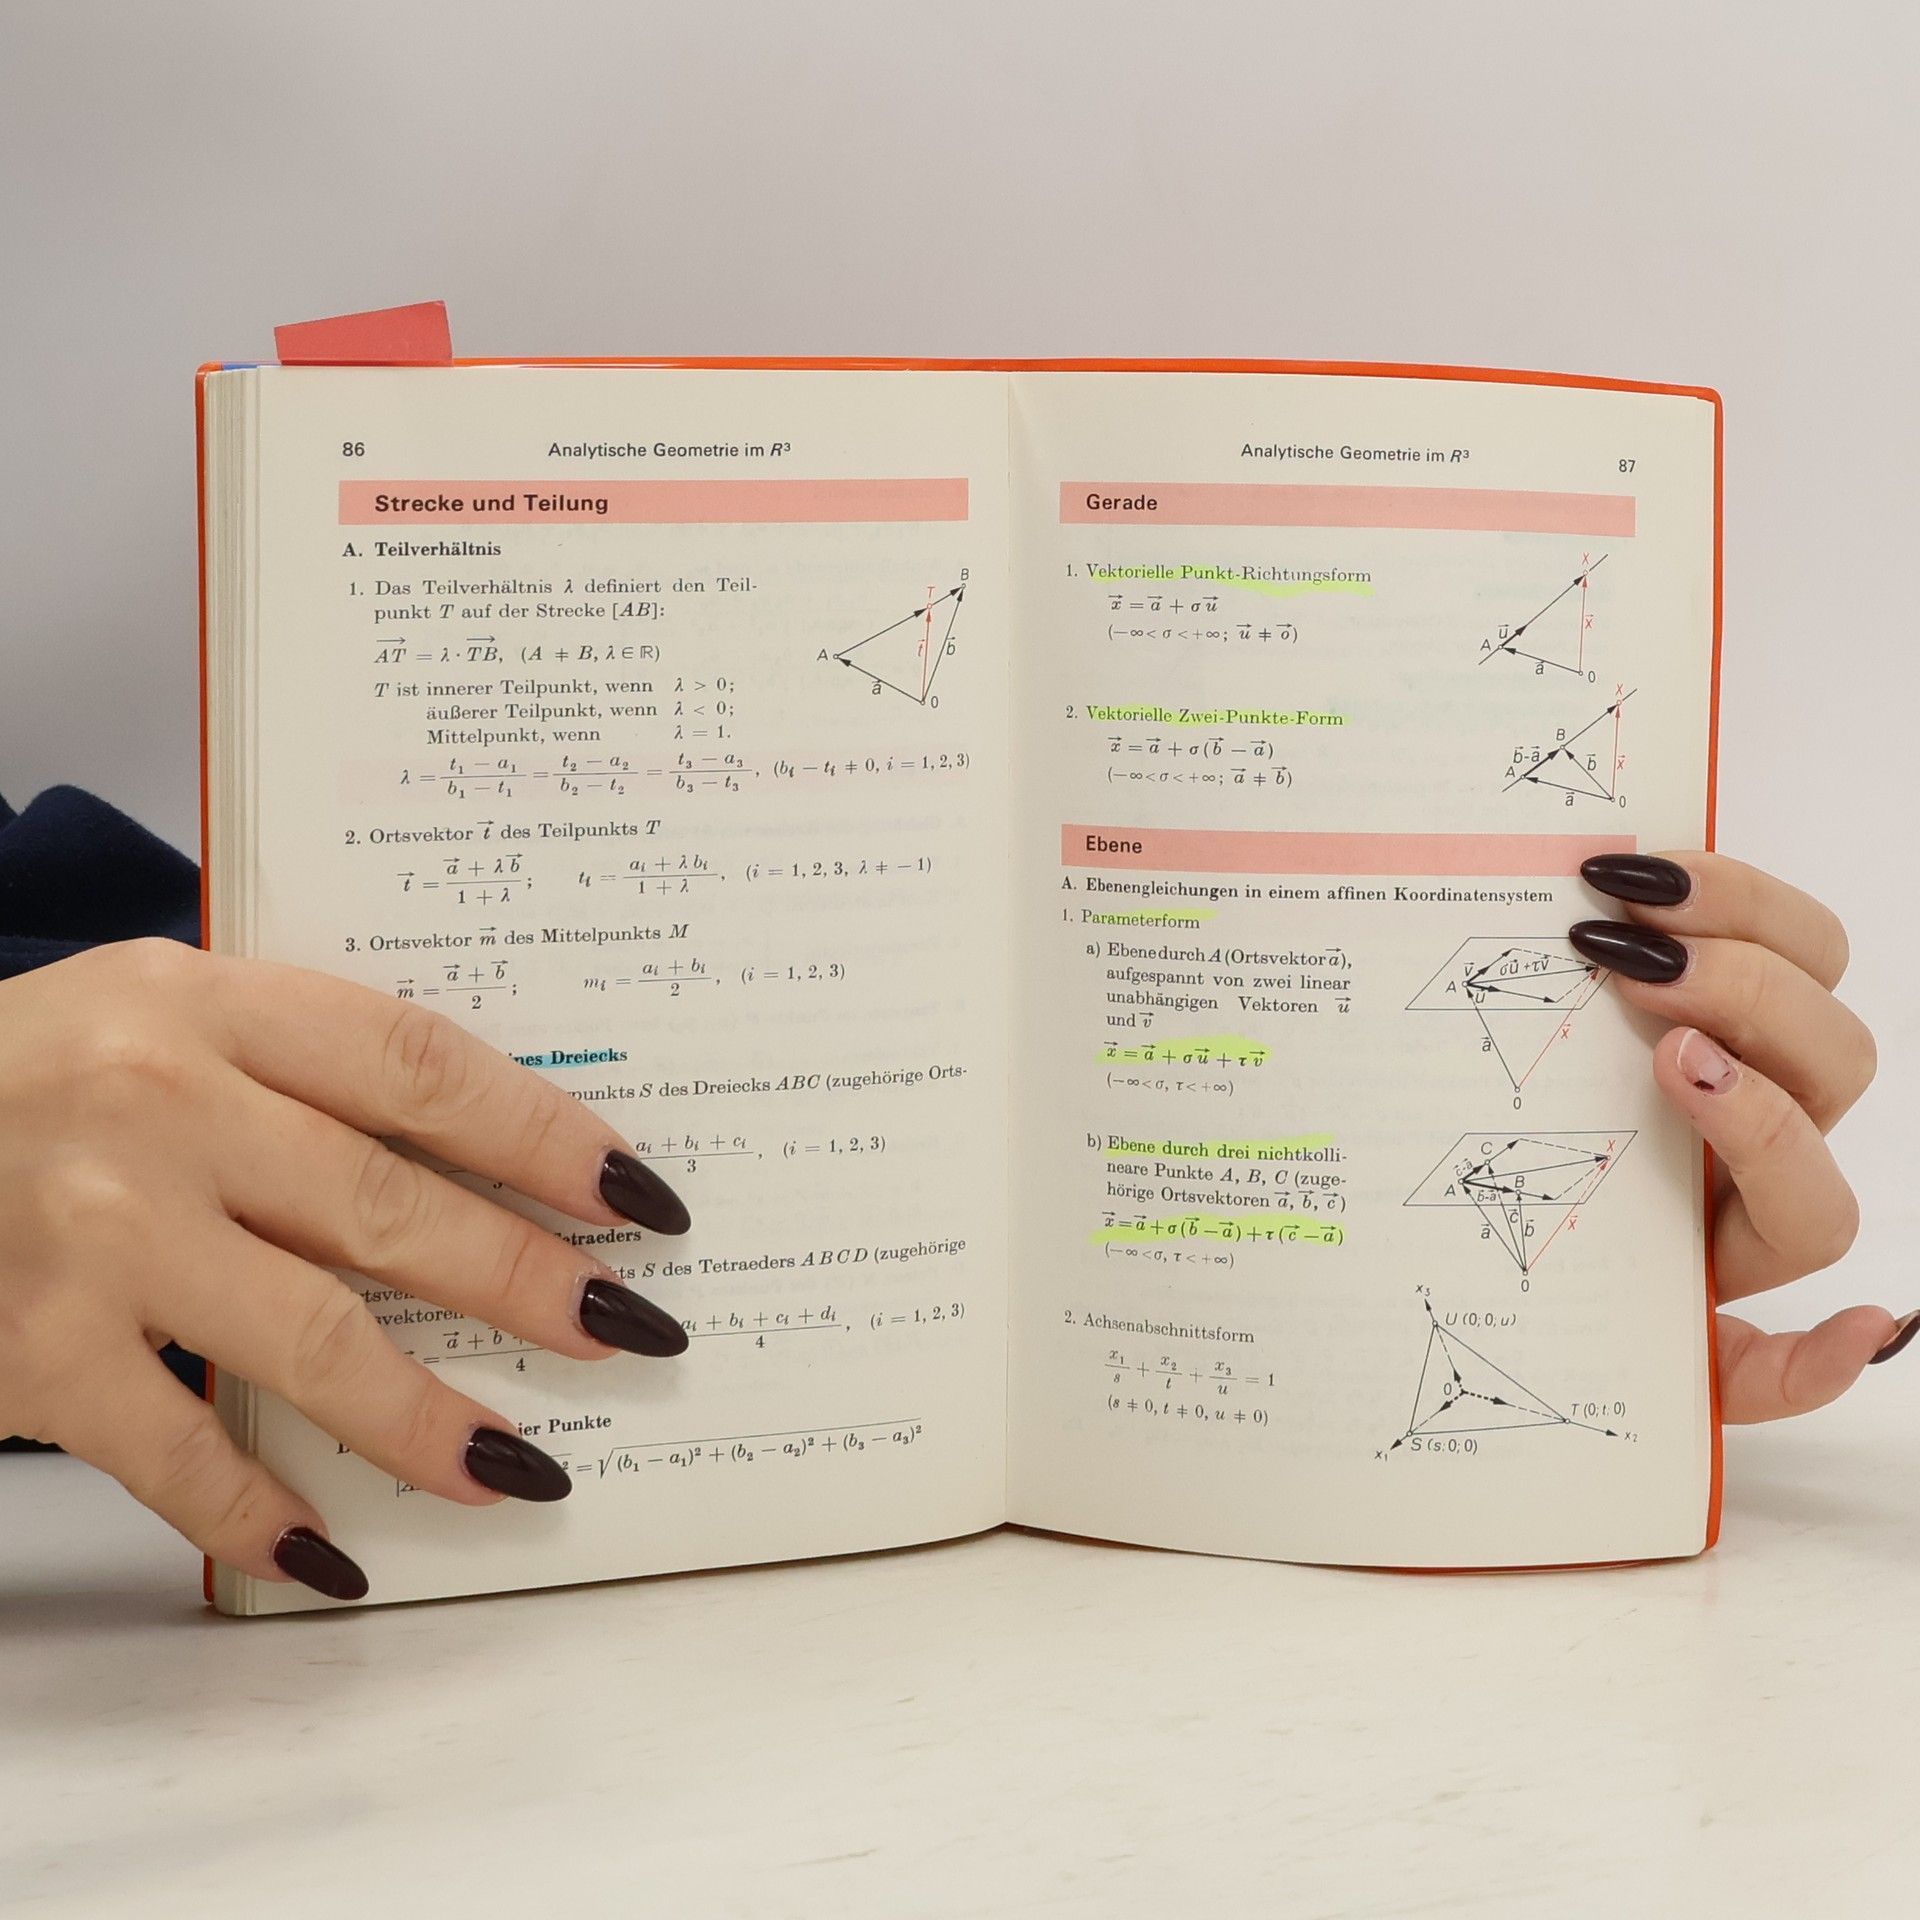 86 Analytische Geometrie im R³
Strecke und Teilung
A. Teilverhältnis
1. Das Teilverhältnis λ definiert den Teil-
punkt T auf der Strecke [AB]:
$\overrightarrow{AT} = \lambda \cdot \overrightarrow{TB}$, (A ≠ B, λ ∈ ℝ)
T ist innerer Teilpunkt, wenn λ > 0;
äußerer Teilpunkt, wenn λ < 0;
Mittelpunkt, wenn λ = 1.
$\lambda = \frac{t_1 - a_1}{b_1 - t_1} = \frac{t_2 - a_2}{b_2 - t_2} = \frac{t_3 - a_3}{b_3 - t_3}$, ($b_i - t_i$ ≠ 0, i = 1, 2, 3)
B
T
A
$\vec{t}$
$\vec{b}$
$\vec{a}$
0
2. Ortsvektor $\vec{t}$ des Teilpunkts T
$\vec{t} = \frac{\vec{a} + \lambda \vec{b}}{1 + \lambda}$; $t_i = \frac{a_i + \lambda b_i}{1 + \lambda}$, (i = 1, 2, 3, λ ≠ −1)
3. Ortsvektor $\vec{m}$ des Mittelpunkts M
$\vec{m} = \frac{\vec{a} + \vec{b}}{2}$; $m_i = \frac{a_i + b_i}{2}$, (i = 1, 2, 3)
Dreiecks
S des Dreiecks ABC (zugehörige Orts-
$\frac{a_i + b_i + c_i}{3}$, (i = 1, 2, 3)
S des Tetraeders ABCD (zugehörige
$\frac{a_i + b_i + c_i + d_i}{4}$, (i = 1, 2, 3)
Punkte
$= \sqrt{(b_1 - a_1)^2 + (b_2 - a_2)^2 + (b_3 - a_3)^2}$
Analytische Geometrie im R³ 87
Gerade
1. Vektorielle Punkt-Richtungsform
$\vec{x} = \vec{a} + \sigma \vec{u}$
(−∞ < σ < +∞; $\vec{u}$ ≠ $\vec{o}$)
X
$\vec{u}$
$\vec{x}$
A
$\vec{a}$
0
2. Vektorielle Zwei-Punkte-Form
$\vec{x} = \vec{a} + \sigma(\vec{b} - \vec{a})$
(−∞ < σ < +∞; $\vec{a}$ ≠ $\vec{b}$)
X
B
$\vec{b}$-$\vec{a}$
$\vec{b}$
$\vec{x}$
A
$\vec{a}$
0
Ebene
A. Ebenengleichungen in einem affinen Koordinatensystem
1. Parameterform
a) Ebene durch A (Ortsvektor $\vec{a}$),
aufgespannt von zwei linear
unabhängigen Vektoren $\vec{u}$
und $\vec{v}$
$\vec{x} = \vec{a} + \sigma \vec{u} + \tau \vec{v}$
(−∞ < σ, τ < +∞)
$\vec{v}$
$\sigma\vec{u} + \tau\vec{v}$
A
$\vec{u}$
$\vec{a}$
$\vec{x}$
0
b) Ebene durch drei nichtkolli-
neare Punkte A, B, C (zuge-
hörige Ortsvektoren $\vec{a}, \vec{b}, \vec{c}$)
$\vec{x} = \vec{a} + \sigma(\vec{b} - \vec{a}) + \tau(\vec{c} - \vec{a})$
(−∞ < σ, τ < +∞)
C
X
$\vec{c}$-$\vec{a}$
A
B
$\vec{b}$-$\vec{a}$
$\vec{a}$
$\vec{c}$
$\vec{b}$
$\vec{x}$
0
2. Achsenabschnittsform
$\frac{x_1}{s} + \frac{x_2}{t} + \frac{x_3}{u} = 1$
(s ≠ 0, t ≠ 0, u ≠ 0)
x₃
U (0; 0; u)
0
T (0; t; 0)
x₂
S (s; 0; 0)
x₁